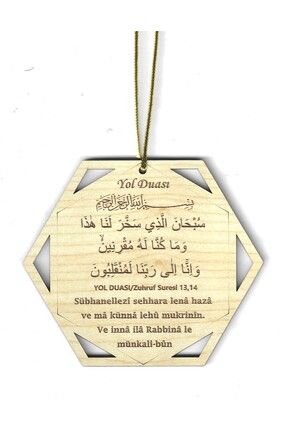 Yol Duası
بسم الله الرحمن الرحيم
سُبْحَانَ الَّذِي سَخَّرَ لَنَا هٰذَا
وَمَا كُنَّا لَهُ مُقْرِنِينَۙ
وَاِنَّا اِلٰى رَبِّنَا لَمُنْقَلِبُونَ
YOL DUASI/Zuhruf Suresi 13,14
Sübhanellezî sehhara lenâ hazâ
ve mâ künnâ lehû mukrinîn.
Ve innâ ilâ Rabbinâ le
münkali-bûn